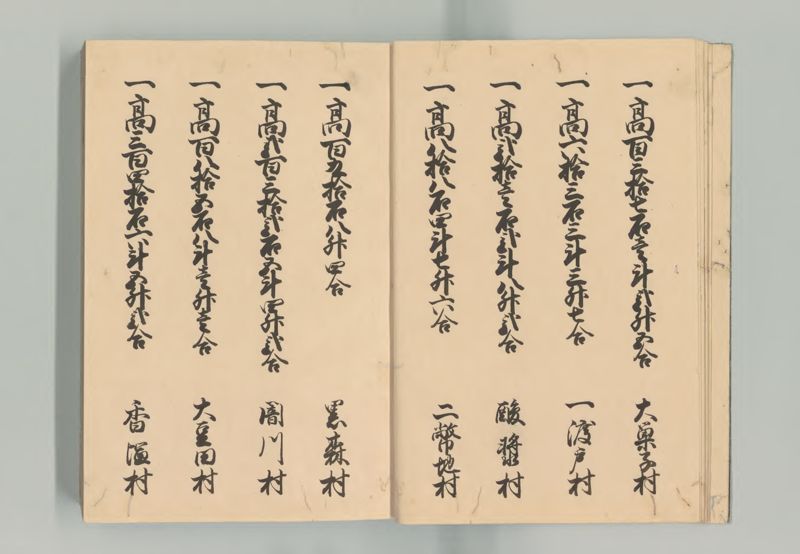 一高百三拾七石壱斗弐升五合 大巣子村
一高六拾三石三斗三升七合 一渡戸村
一高弐拾壱石弐斗八升弐合 酸漿村
一高八拾八石四斗七升六合 二幣地村
一高百五拾石八升四合 黒森村
一高弐百三拾弐石五斗四升弐合 闇川村
一高百八拾五石八斗壱升壱合 大豆田村
一高三百四拾石六斗五升弐合 香澄村